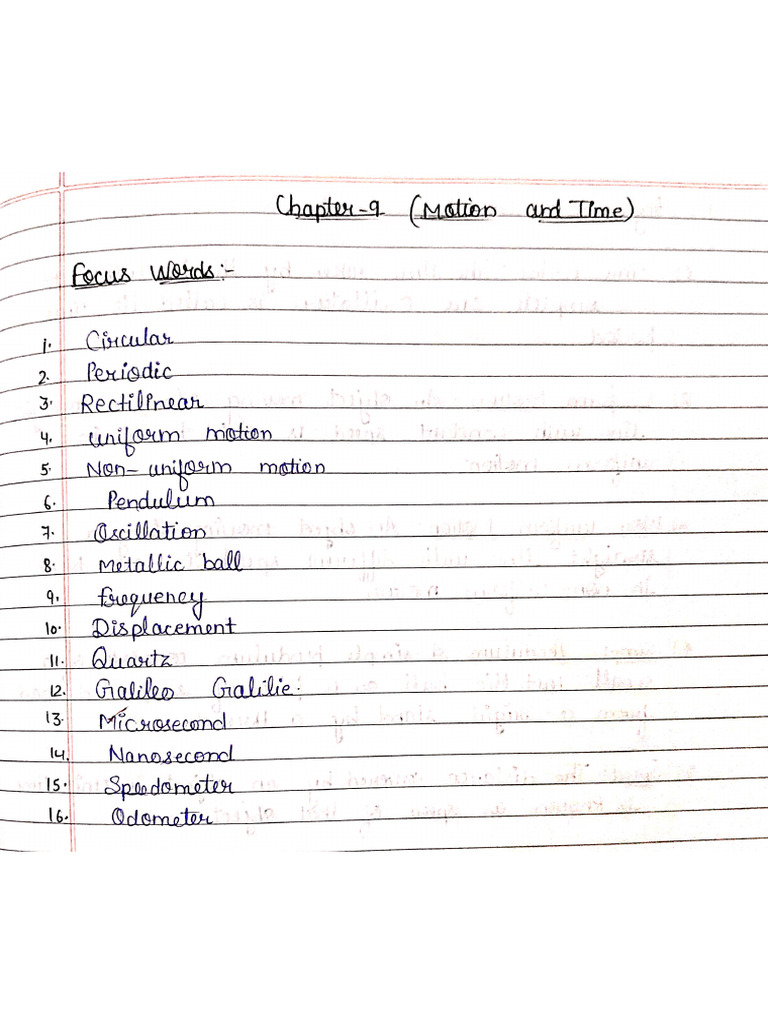 Chapter-9 (Motion and Time)
Focus Words:-
1. Circular
2. Periodic
3. Rectilinear
4. uniform motion
5. Non-uniform motion
6. Pendulum
7. Oscillation
8. Metallic ball
9. frequency
10. Displacement
11. Quartz
12. Galileo Galilie.
13. Microsecond
14. Nanosecond
15. Speedometer
16. Odometer